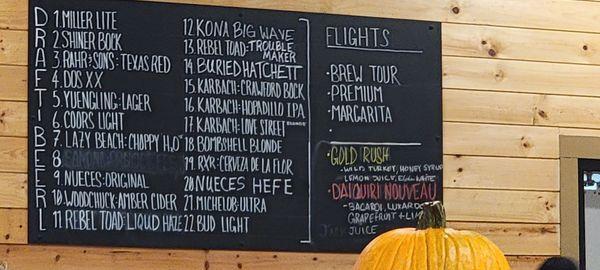 DRAFT BEER
1. MILLER LITE
2. SHINER BOCK
3. RAHR & SONS: TEXAS RED
4. DOS XX
5. YUENGLING: LAGER
6. COORS LIGHT
7. LAZY BEACH: CHOPPY H₂O
8
9. NUECES: ORIGINAL
10. WOODCHUCK: AMBER CIDER
11. REBEL TOAD: LIQUD HAZE
12 KONA BIG WAVE
13 REBEL TOAD: TROUBLE
MAKER
14. BURIED HATCHETT
15 KARBACH: CRAWFORD BOCK
16. KARBACH: HOPADILLO I.P.A
17. KARBACH: LOVE STREET
18 BOMBSHELL BLONDE
19. RXR: CERVEZA DE LA FLOR
20 NUECES HEFE
21. MICHELOB: ULTRA
22 BUD LIGHT
FLIGHTS
• BREW TOUR
• PREMIUM
• MARGARITA
•
• GOLD RUSH
- WILD TURKEY, HONEY SYRUP
LEMON JUICE, EGG WHITE
• DAIQUIRI NOUVEAU
- BACARDI, LUXARDO
GRAPEFRUIT + LIM
JUICE